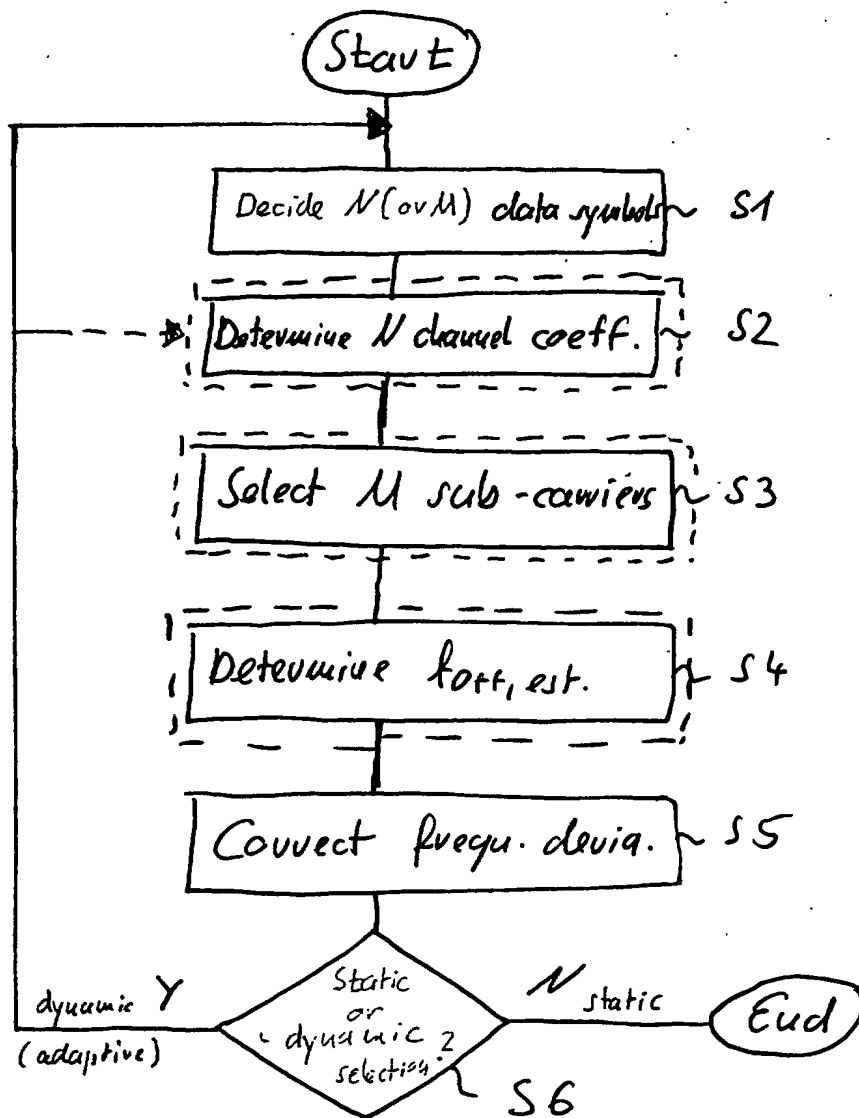 Start
Decide N (or M) data symbols S1
Determine N channel coeff. S2
Select M sub-carriers S3
Determine foff, est. S4
Correct frequ. devia. S5
Static
or
dynamic
selection?
dynamic Y
(adaptive)
N static
End
S6